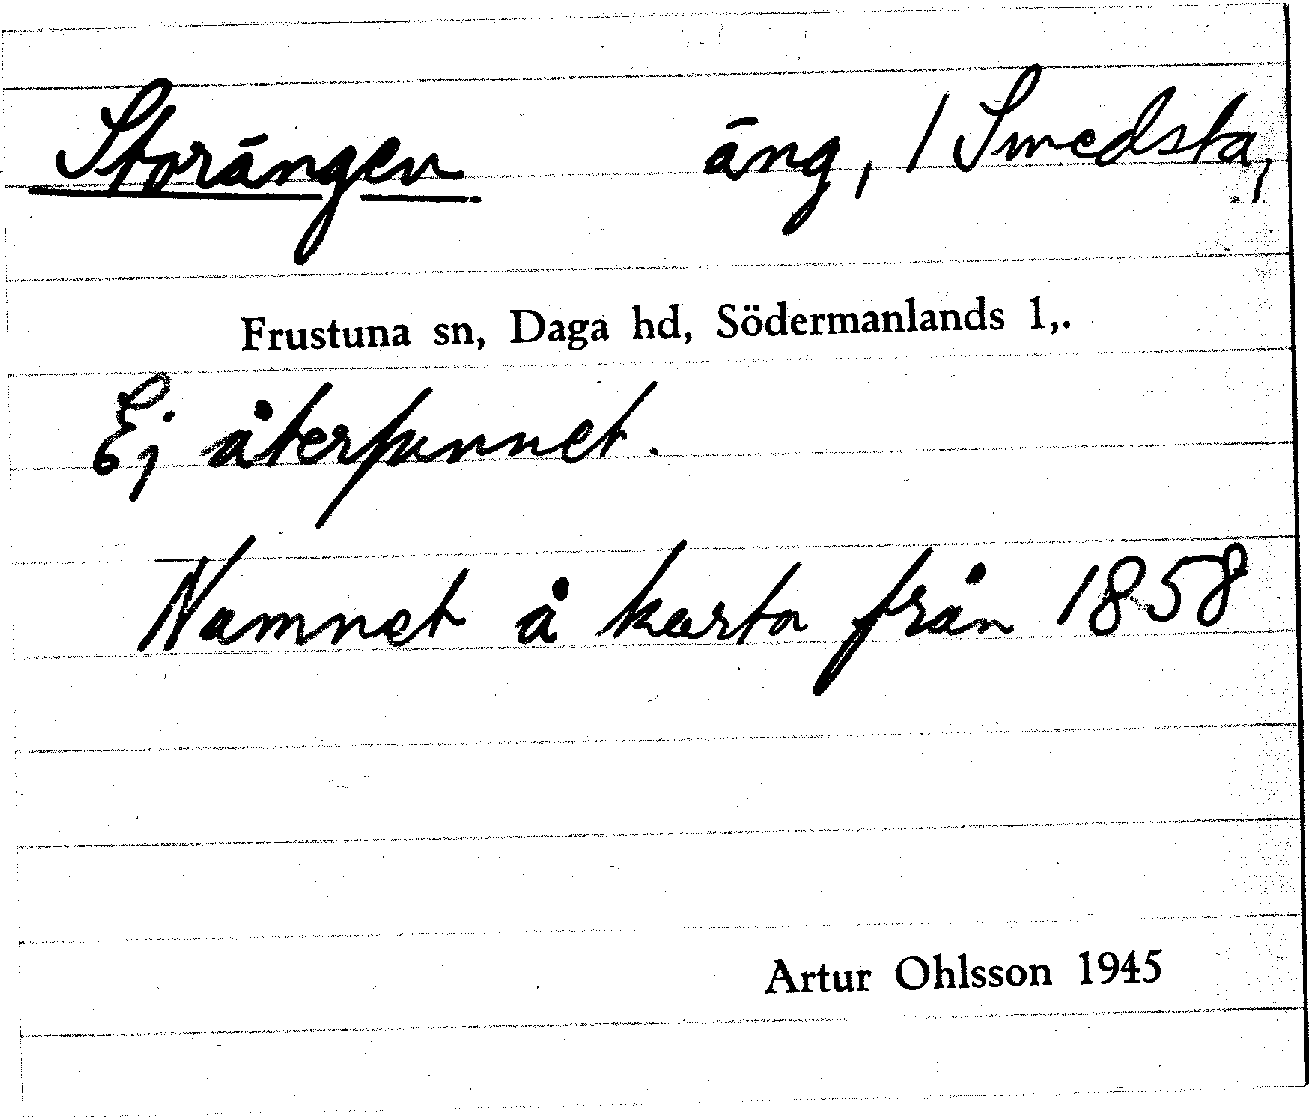 Storängen äng, / Smedsta,
Frustuna sn, Daga hd, Södermanlands l,.
Ej återfunnet.
Namnet å karta från 1858
Artur Ohlsson 1945